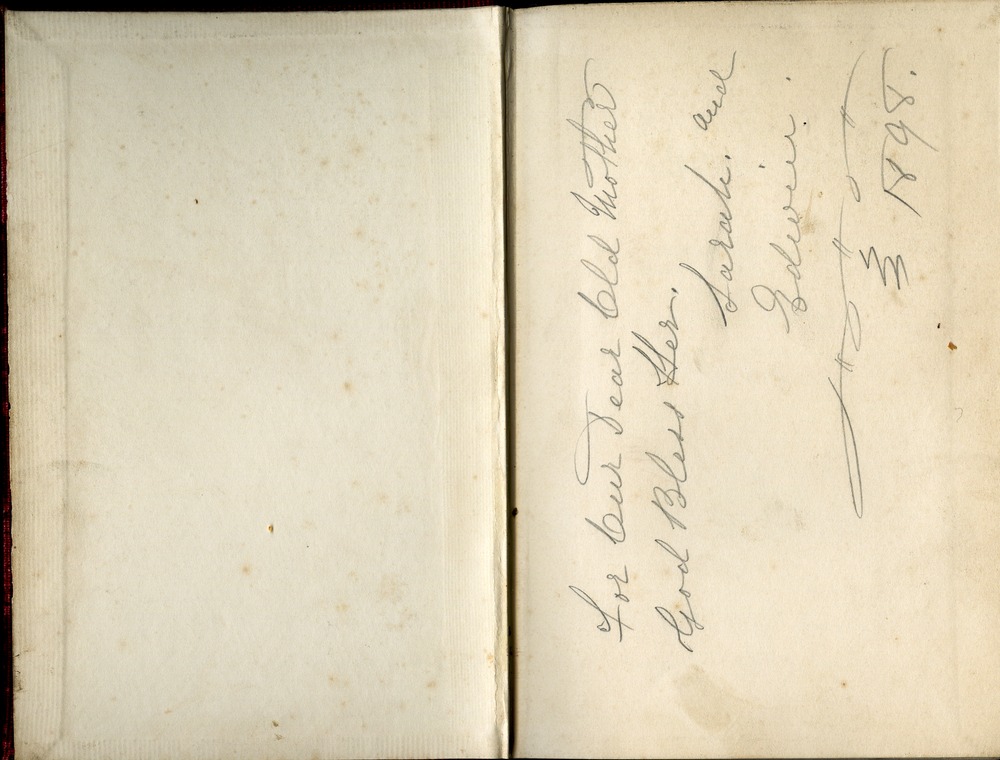 For Our Dear Old Mother
God Bless Her.
Sarah. and
Edwin.
1898.